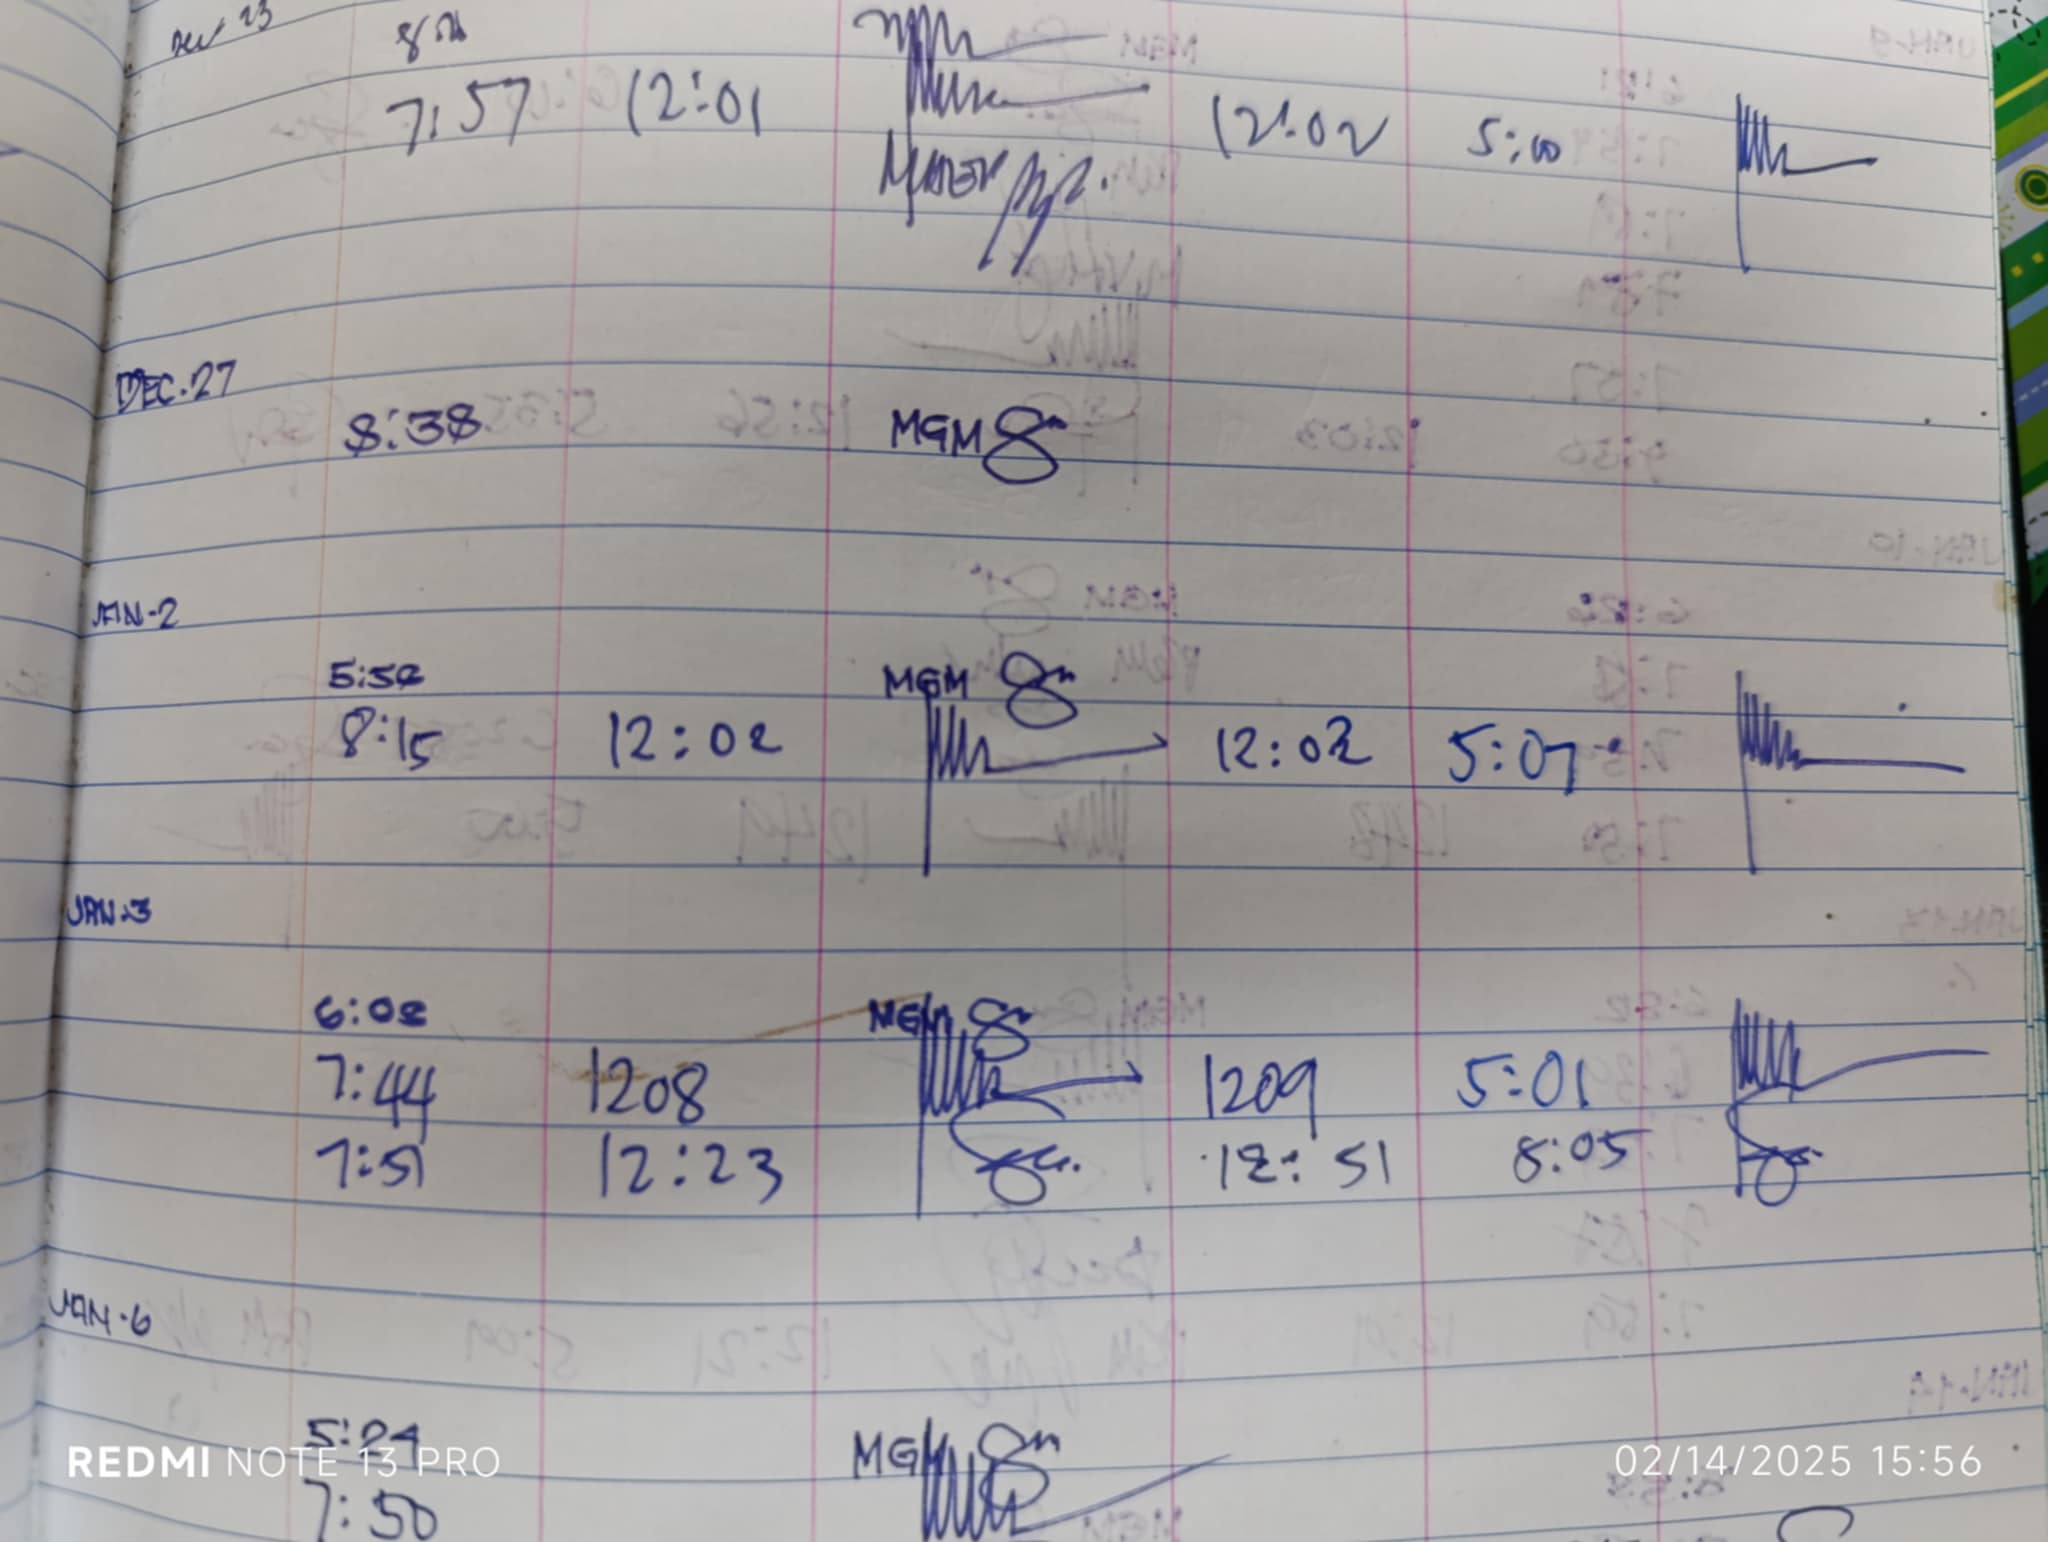 Dec 23
7:57 12:01 12:02 5:00
DEC.27
8:38 MGM
JAN-2
5:52 MGM
8:15 12:02 12:02 5:07
JAN.3
6:02 MGM
7:44 1208 1209 5:01
7:51 12:23 12:51 8:05
JAN.6
5:24 MGM
7:50
REDMI NOTE 13 PRO 02/14/2025 15:56